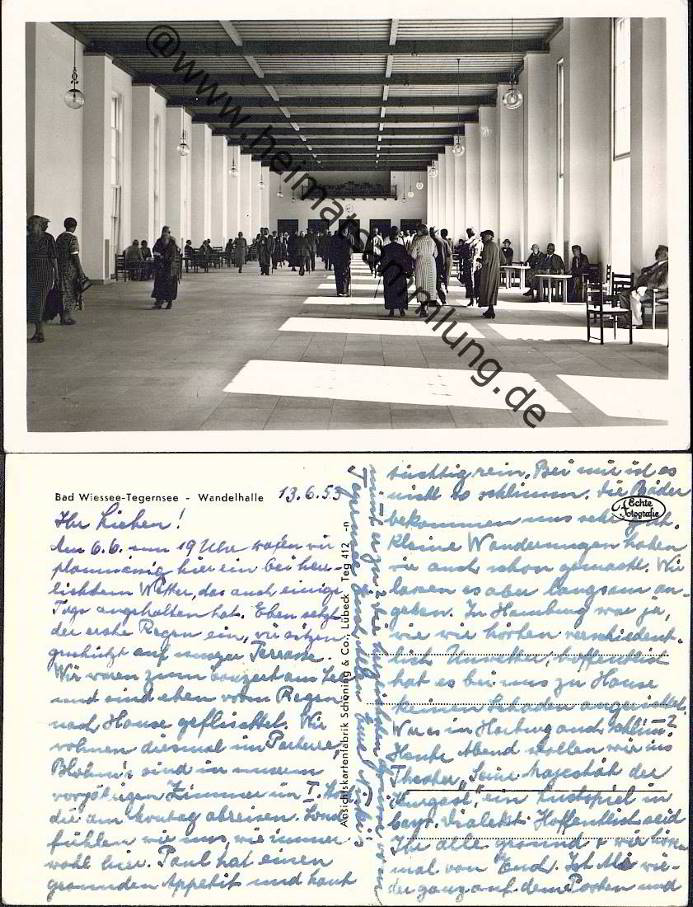 @www.heimatsammlung.de
Bad Wiessee-Tegernsee - Wandelhalle 13.6.53
Ihr Lieben!
Am 6.6. um 19 Uhr trafen wir
planmäßig hier ein bei herr-
lichstem Wetter, das auch einige
Tage angehalten hat. Eben setzt
der erste Regen ein, wir sitzen
geschützt auf unserer Terrasse.
Wir waren zum Konzert am See
und sind eben vorm Regen
nach Hause geflüchtet. Wir
wohnen diesmal im Parterre,
sind in unserem
vorjährigen Zimmer im I.
die am Montag abreisen. Sonst
fühlen wir uns wie immer
wohl hier. Paul hat einen
gesunden Appetit und haut
Ansichtskartenfabrik Schöning & Co., Lübeck Teg 412 -n
tüchtig rein. Bei mir ist es
nicht so schlimm. Die Bäder
bekommen uns sehr gut.
Kleine Wanderungen haben
wir auch schon gemacht. Wir
lassen es aber langsam an-
gehen. In Hamburg war ja,
wie wir hörten verschiedent-
lich Unwetter, hoffentlich
hat es bei uns zu Hause
keinen Schaden angerichtet.
War es in Harburg auch schlimm?
Heute Abend wollen wir ins
Theater „Seine Majestät der
Kurgast", ein Lustspiel in
bayr. Dialekt. Hoffentlich seid
Ihr alle gesund & wir hören
mal von Euch. Ich bin wie-
der ganz auf dem Posten und
Echte
Fotografie